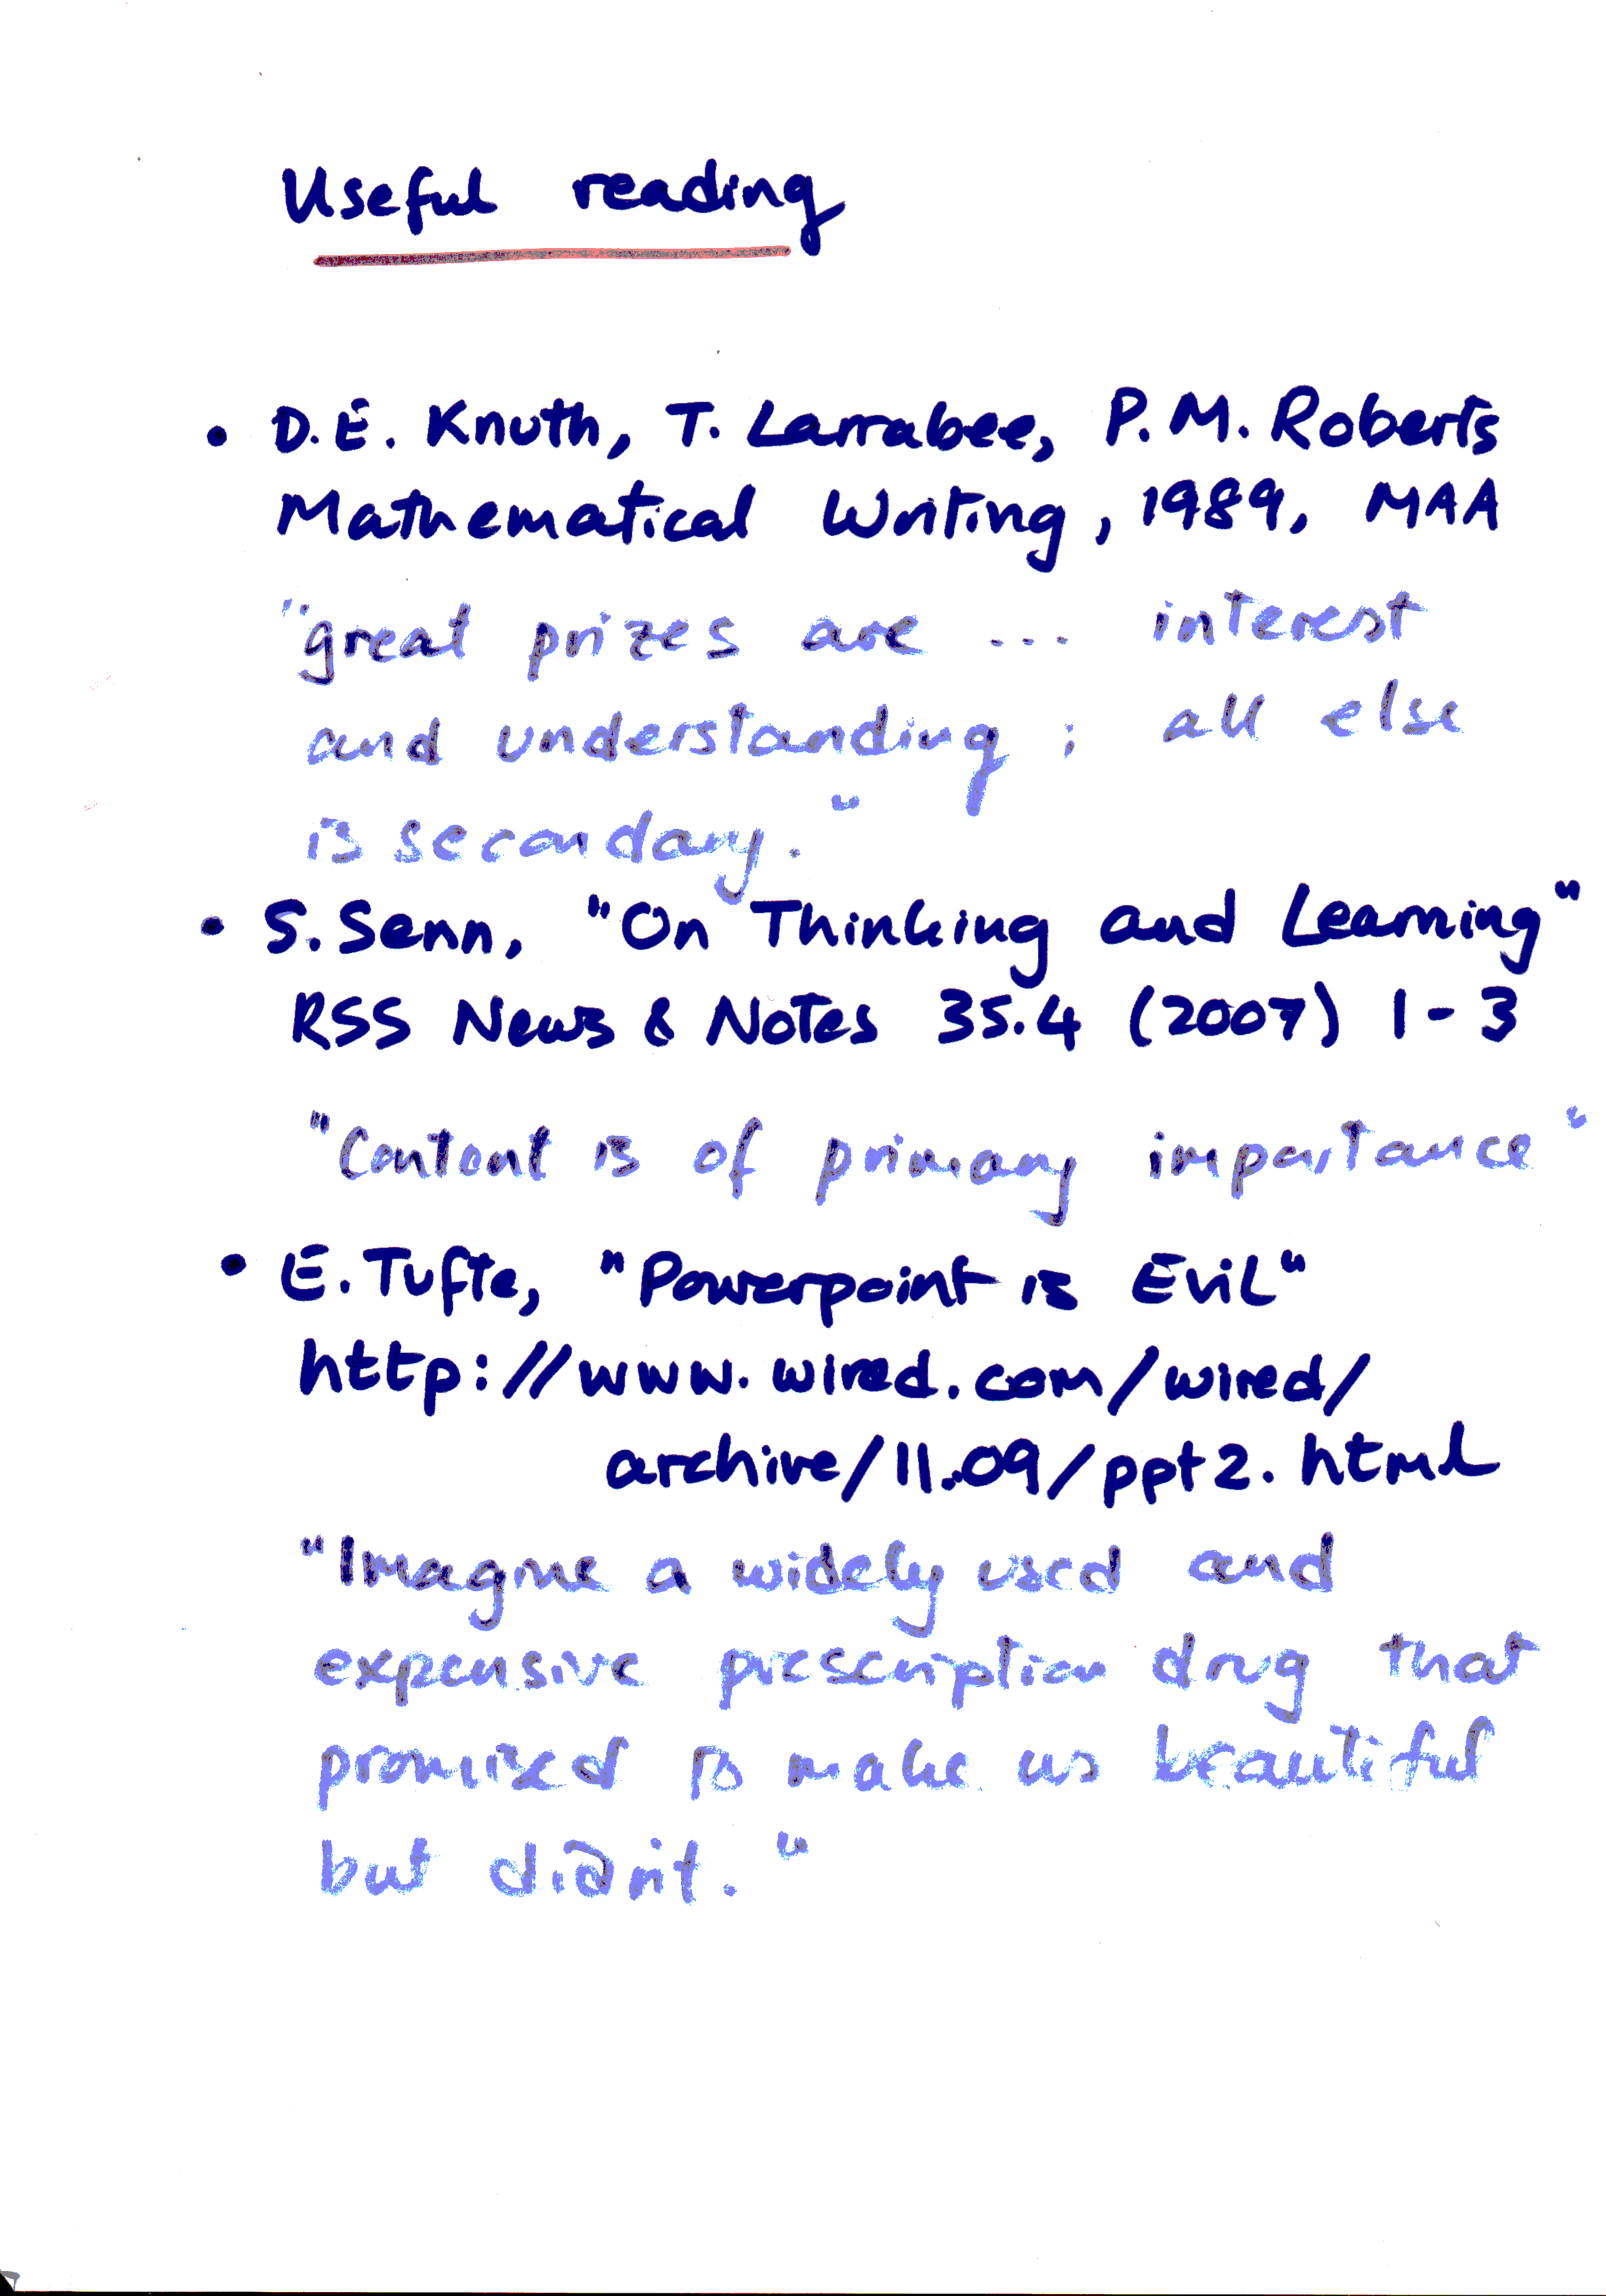 Useful reading
• D.E. Knuth, T. Larrabee, P.M. Roberts
Mathematical Writing, 1989, MAA
"great prizes are ... interest
and understanding; all else
is secondary."
• S. Senn, "On Thinking and Learning"
RSS News & Notes 35.4 (2007) 1-3
"Content is of primary importance"
• E. Tufte, "Powerpoint is Evil"
http://www.wired.com/wired/
archive/11.09/ppt2.html
"Imagine a widely used and
expensive prescription drug that
promised to make us beautiful
but didn't."